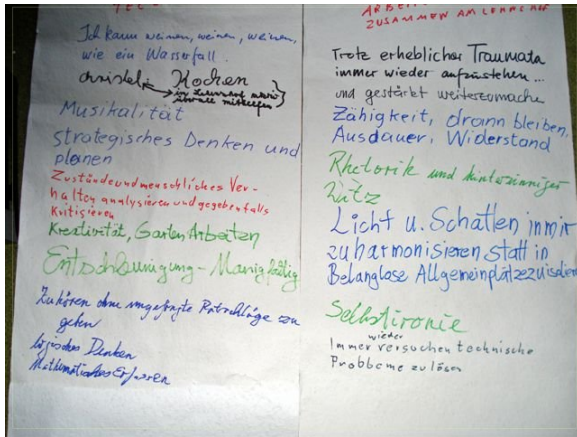 Ich kann weinen, weinen, weinen,
wie ein Wasserfall.
Kochen
in Lebenshof
überall mithelfen
Musikalität
strategisches Denken und
planen
Zustände und menschliches Ver-
halten analysieren und gegebenfalls
Kritisieren
Kreativität, Garten Arbeiten
Entschleunigung - Manigfaltig
Zuhören ohne ungefragte Ratschläge zu
geben
logisches Denken
Mathematisches
ZUSAMMEN AM
Trotz erheblicher Traumata
immer wieder aufzustehen...
und gestärkt weiterzumachen
Zähigkeit, drann bleiben,
Ausdauer, Widerstand
Rhetorik und hintersinniger
Witz
Licht u. Schatten in mir
zu harmonisieren statt in
Belanglose Allgemeinplätze zu
Selbstironie
wieder
Immer versuchen technische
Probleme zu lösen